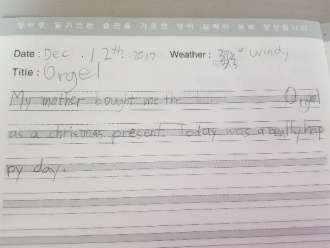 영어로 일기쓰는 습관을 기르면 영어 실력이 쑥쑥 향상됩니다
Date : Dec . 12th. 2017 Weather : windy
Title : Orgel
My mother bought me the Orgel
as a christmas present. Today was a really hap
py day.